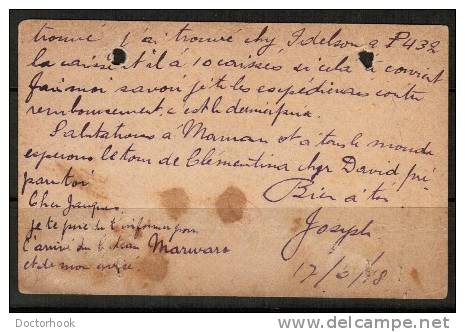 trouvé j'ai trouvé chy Idelson a P432
la caisse et il à 10 caisses si cela à convient
fais moi savoir je te les expédierais contre
remboursement, c'est le dernier prix.
Salutations à Maman et à tous le monde
esperons le tour de Clémentina chez David pré
par toi
Bien à toi
Joseph
17/2/18
Cher Jacques
je te prie de t'informer pour
l'arrivé du Marware
et de mon
Doctorhook
delcampe.net